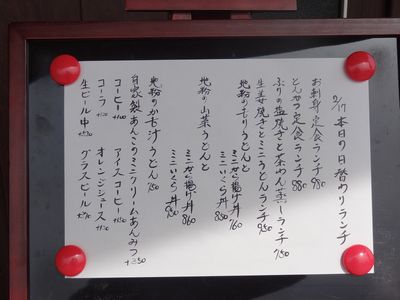 2/17 本日の日替わりランチ
お刺身定食ランチ 980
とんかつ定食ランチ 880
ぶりの塩焼きと茶わん蒸しランチ 950
生姜焼きとミニうどんランチ 950
地粉のもりうどんと
ミニから揚げ丼 760
ミニいくら丼 850
地粉の山菜うどんと
ミニから揚げ丼 860
ミニいくら丼 950
地粉のかき汁うどん 750
自家製あんこのミニクリームあんみつ +250
コーヒー +100 アイスコーヒー +150
コーラ オレンジジュース
生ビール中 グラスビール